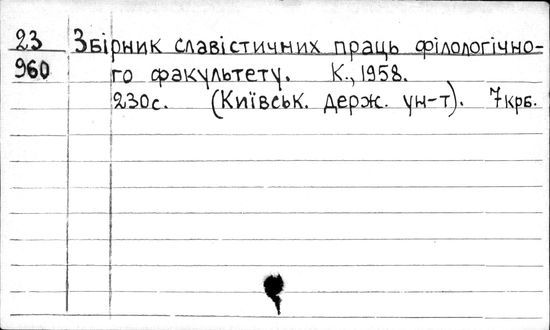 23 Збірник славістичних праць філологічно-
960 го факультету. К., 1958.
230с. (Київськ. держ. ун-т). 7крб.